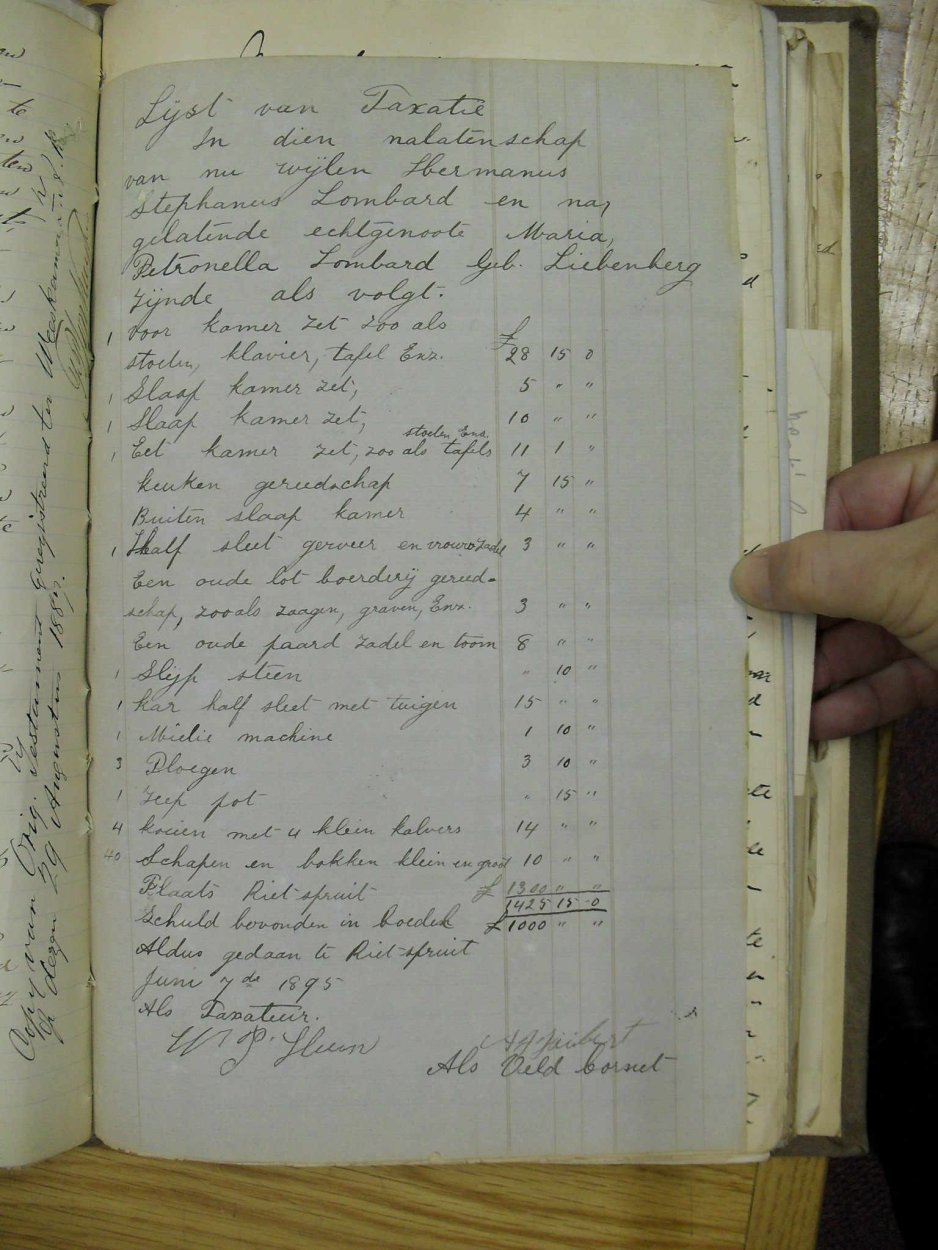 Lijst van Taxatie
In dien nalatenschap
van nu wijlen Hermanus
Stephanus Lombard en na,
gelatende echtgenoote Maria,
Petronella Lombard Geb. Liebenberg
zijnde als volgt.
1 voor kamer zet zoo als
stoelen, klavier, tafel Enz. £ 28 15 0
1 Slaap kamer zet, 5 " "
1 Slaap kamer zet, 10 " "
stoelen Enz.
1 Eet kamer zet, zoo als tafels 11 1 "
keuken gereedschap 7 15 "
Buiten slaap kamer 4 " "
1 Half sleet gerveer en vrouw zadel 3 " "
Een oude lot boerderij gereed-
schap, zooals zaagen, graven, Enz. 3 " "
Een oude paard zadel en toom 8 " "
1 Slijp steen " 10 "
1 kar half sleet met tuigen 15 " "
1 Mielie machine 1 10 "
3 Ploegen 3 10 "
1 Zeep pot " 15 "
4 koeien met 4 klein kalvers 14 " "
40 Schapen en bokken klein en groot 10 " "
Plaats Riet spruit £ 1300 " "
1425 15 0
Schuld bevonden in boedel £ 1000 " "
Aldus gedaan te Riet spruit
Juni 7de 1895
Als Taxateur.
Als Veld Cornet
Copy van Orig. Testament Geregistreerd ter Weeskamer
dezen 29 Augustus 188